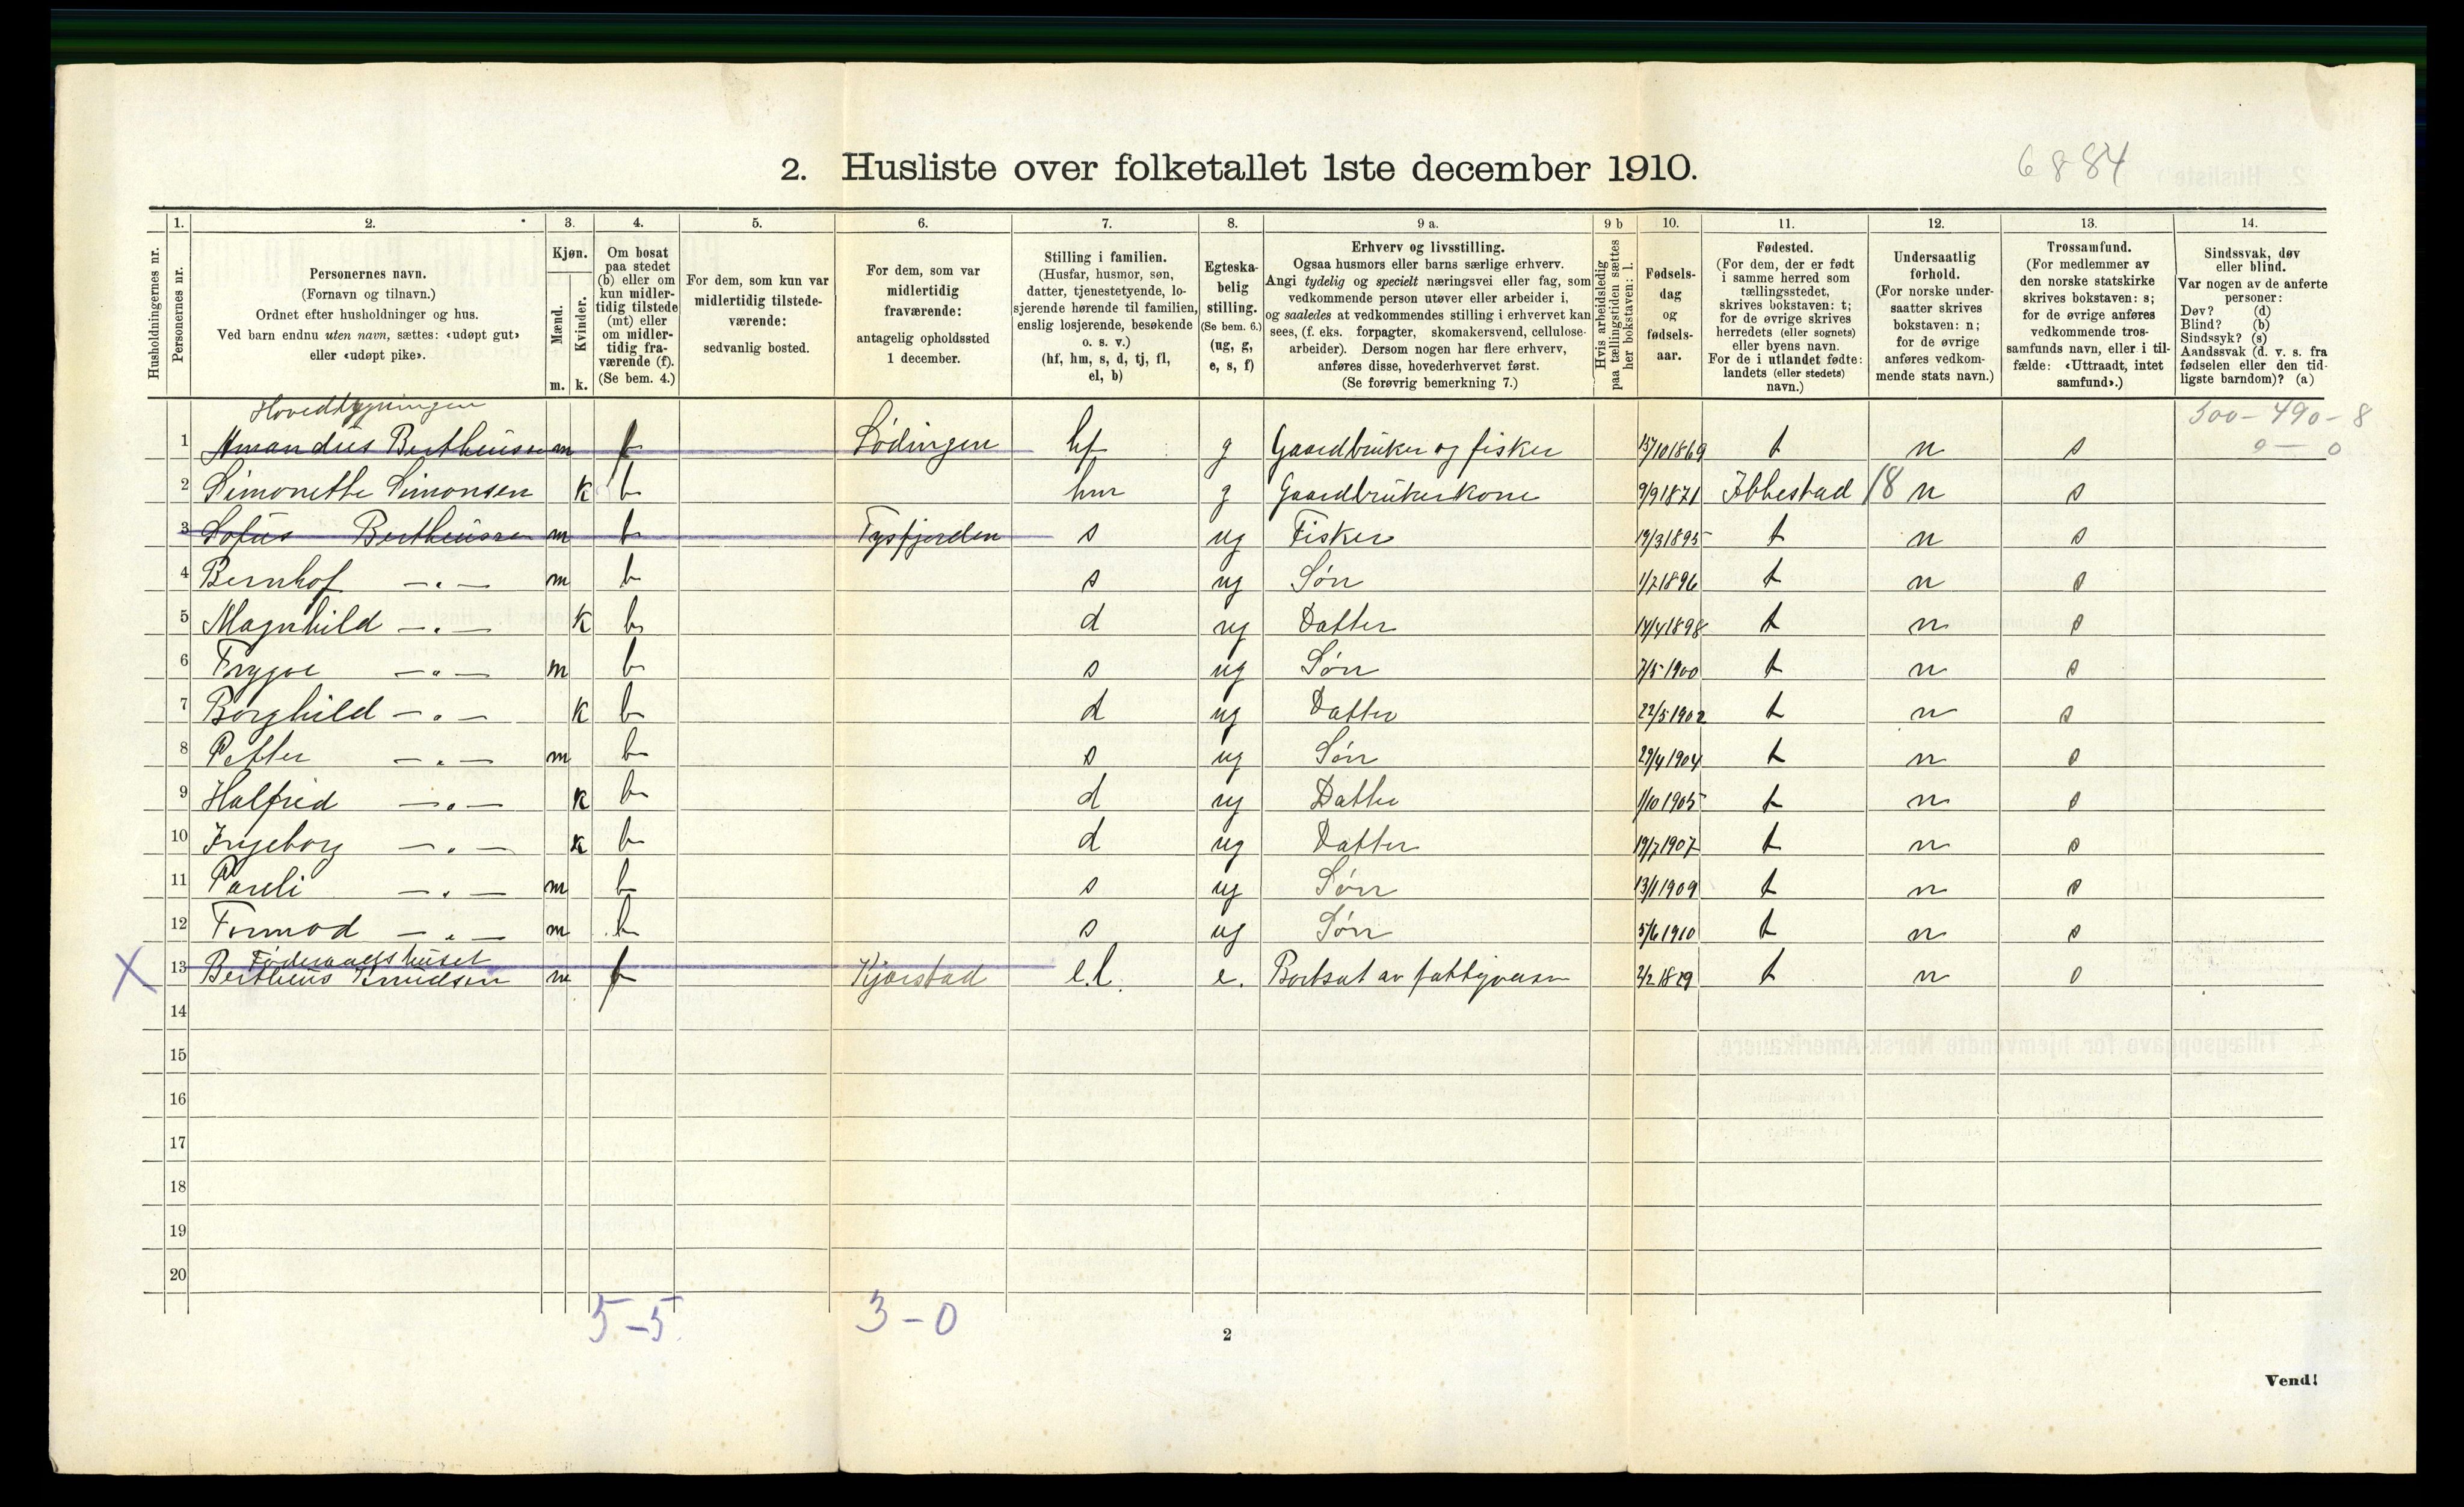 2. Husliste over folketallet 1ste december 1910.
6884
Husholdningernes nr.
1. Personernes nr.
2. Personernes navn.
(Fornavn og tilnavn.)
Ordnet efter husholdninger og hus.
Ved barn endnu uten navn, sættes: «udøpt gut»
eller «udøpt pike».
3. Kjøn.
Mænd. m.
Kvinder. k.
4. Om bosat
paa stedet
(b) eller om
kun midler-
tidig tilstede
(mt) eller
om midler-
tidig fra-
værende (f).
(Se bem. 4.)
5. For dem, som kun var
midlertidig tilstede-
værende:
sedvanlig bosted.
6. For dem, som var
midlertidig
fraværende:
antagelig opholdssted
1 december.
7. Stilling i familien.
(Husfar, husmor, søn,
datter, tjenestetyende, lo-
sjerende hørende til familien,
enslig losjerende, besøkende
o. s. v.)
(hf, hm, s, d, tj, fl,
el, b)
8. Egteska-
belig
stilling.
(Se bem. 6.)
(ug, g,
e, s, f)
9 a. Erhverv og livsstilling.
Ogsaa husmors eller barns særlige erhverv.
Angi tydelig og specielt næringsvei eller fag, som
vedkommende person utøver eller arbeider i,
og saaledes at vedkommendes stilling i erhvervet kan
sees, (f. eks. forpagter, skomakersvend, cellulose-
arbeider). Dersom nogen har flere erhverv,
anføres disse, hovederhvervet først.
(Se forøvrig bemerkning 7.)
9 b Hvis arbeidsledig
paa tællingstiden sættes
her bokstaven: l.
10. Fødsels-
dag
og
fødsels-
aar.
11. Fødested.
(For dem, der er født
i samme herred som
tællingsstedet,
skrives bokstaven: t;
for de øvrige skrives
herredets (eller sognets)
eller byens navn.
For de i utlandet fødte:
landets (eller stedets)
navn.)
12. Undersaatlig
forhold.
(For norske under-
saatter skrives
bokstaven: n;
for de øvrige
anføres vedkom-
mende stats navn.)
13. Trossamfund.
(For medlemmer av
den norske statskirke
skrives bokstaven: s;
for de øvrige anføres
vedkommende tros-
samfunds navn, eller i til-
fælde: «Uttraadt, intet
samfund».)
14. Sindssvak, døv
eller blind.
Var nogen av de anførte
personer:
Døv? (d)
Blind? (b)
Sindssyk? (s)
Aandssvak (d. v. s. fra
fødselen eller den tid-
ligste barndom)? (a)
Hovedbygningen
300-490-8
0 — 0
1 Amandus Bertheussen m f Lødingen hf g Gaardbruker og fisker 15/10 1869 t n s
2 Simonette Simonsen k b hm g Gaardbrukerkone 9/9 1871 Ibbestad 18 n s
3 Sofus Bertheussen m b Tysfjorden s ug Fisker 19/3 1895 t n s
4 Bernhof —„— m b s ug Søn 1/7 1896 t n s
5 Magnhild —„— k b d ug Datter 14/4 1898 t n s
6 Trygve —„— m b s ug Søn 7/5 1900 t n s
7 Borghild —„— k b d ug Datter 22/5 1902 t n s
8 Petter —„— m b s ug Søn 29/4 1904 t n s
9 Halfrid —„— k b d ug Datter 1/10 1905 t n s
10 Ingeborg —„— k b d ug Datter 19/7 1907 t n s
11 Pareli —„— m b s ug Søn 13/1 1909 t n s
12 Tormod —„— m b s ug Søn 5/6 1910 t n s
Føderaadshuset
X 13 Bertheus Knudsen m f Kjørstad e.l. e. Bortsat av fattigvæsen 2/2 1829 t n s
14
15
16
17
18
19
20
5-5 3-0
2
Vend!